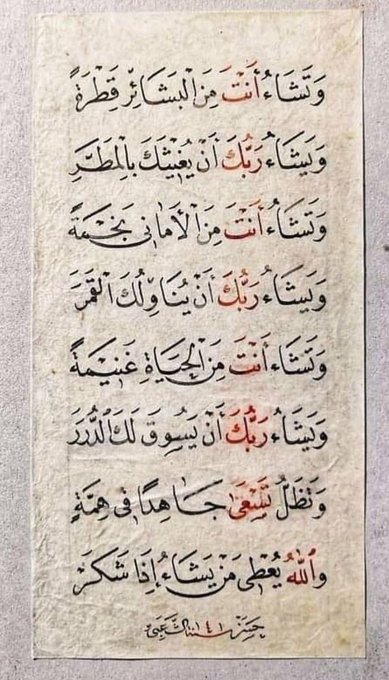 وَتَشَاءُ أَنْتَ مِنَ الْبَشَائِرِ قَطْرَةً
وَيَشَاءُ رَبُّكَ أَنْ يُغِيثَكَ بِالْمَطَرِ
وَتَشَاءُ أَنْتَ مِنَ الْأَمَانِي نَجْمَةً
وَيَشَاءُ رَبُّكَ أَنْ يُنَاوِلَكَ الْقَمَرَ
وَتَشَاءُ أَنْتَ مِنَ الْحَيَاةِ غَنِيمَةً
وَيَشَاءُ رَبُّكَ أَنْ يَسُوقَ لَكَ الدُّرَرَ
وَتَظَلُّ تَسْعَىٰ جَاهِدًا فِي هِمَّةٍ
وَاللَّهُ يُعْطِي مَنْ يَشَاءُ إِذَا شَكَرَ